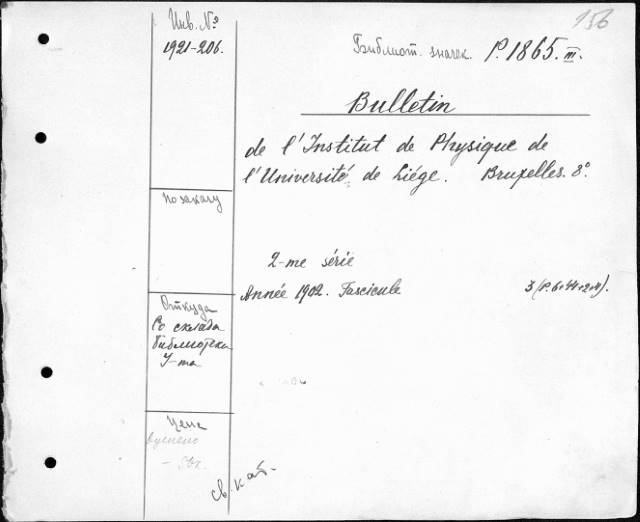 156
Инв. №
1921-206.
Библиот. значек. P.1865.III.
Bulletin
de l'Institut de Physique de
l'Université de Liége. Bruxelles. 8°.
По заказу
2-me série
Année 1902. Fascicule 3
Откуда
Со склада
библиотеки
У-та
Цена
св. кат.